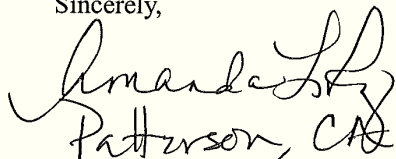 Sincerely,
Amanda
Patterson, CA